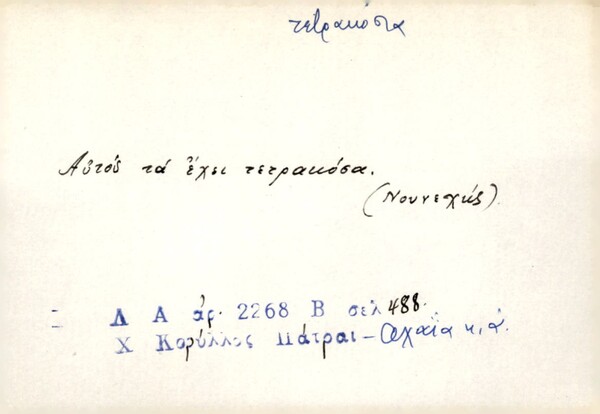 τετρακόσια
Αὐτός τά ἔχει τετρακόσα.
(Νουνεχής).
Λ Α ἀρ. 2268 Β σελ 488.
Χ Κορύλλος Πάτραι - Ἀχαΐα κ.ἀ.